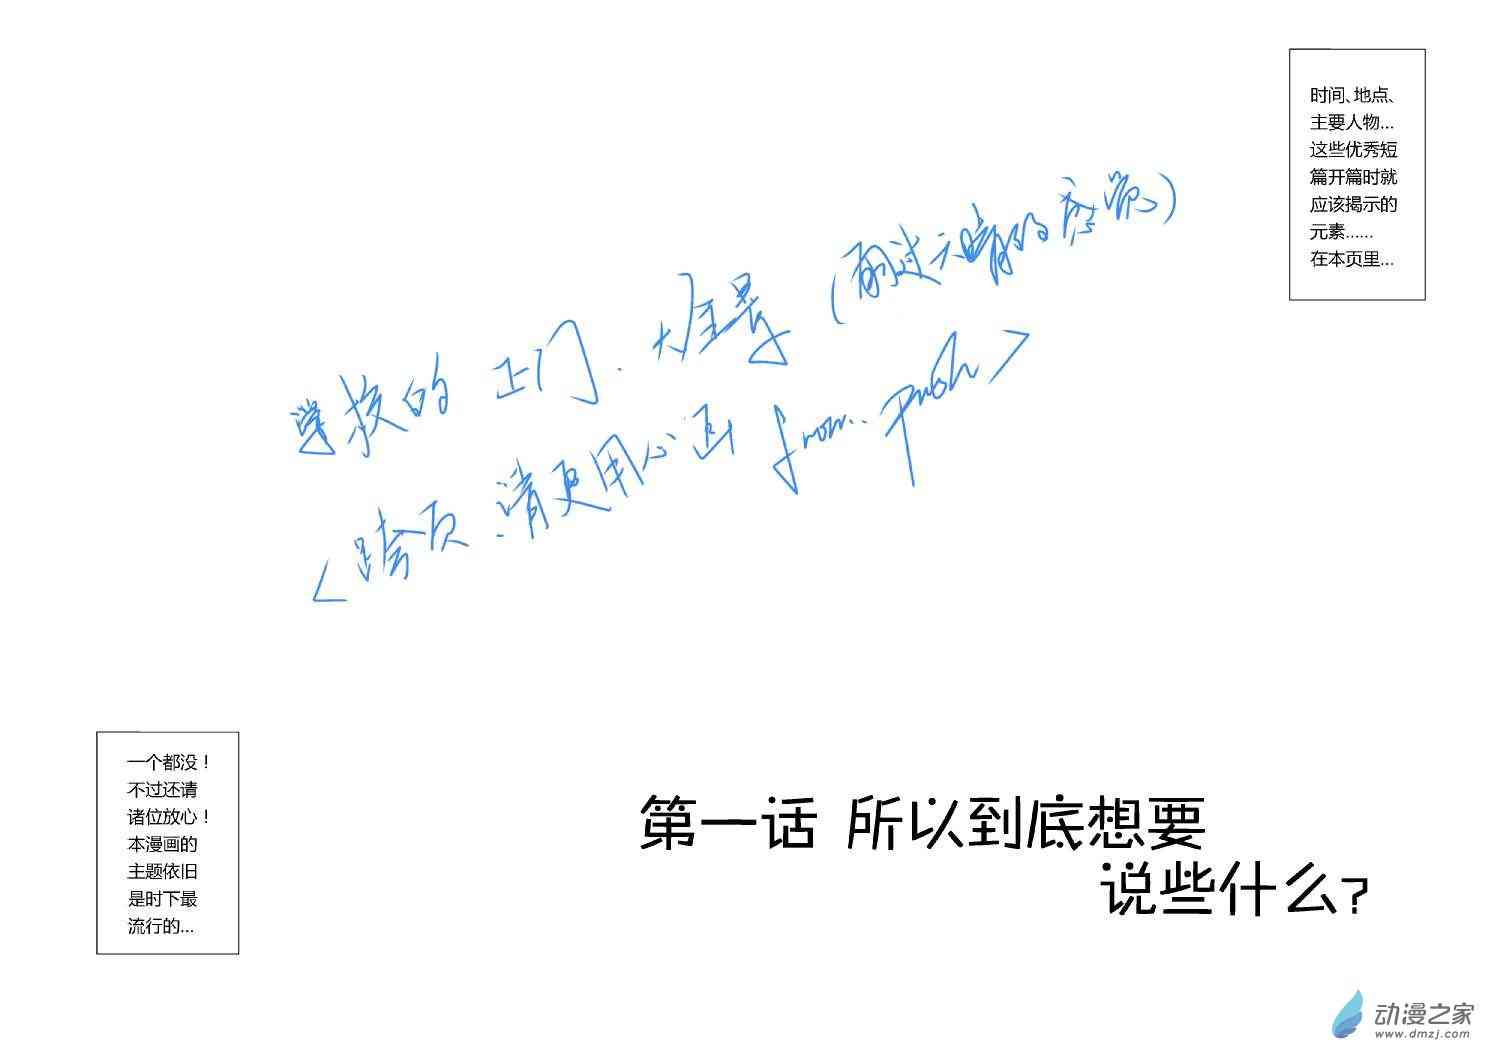 时间、地点、
主要人物...
这些优秀短
篇开篇时就
应该揭示的
元素......
在本页里...
学校的 正门. 大全景 (雨过天晴的感觉)
<跨页.请更用心画 from.. push>
一个都没！
不过还请
诸位放心！
本漫画的
主题依旧
是时下最
流行的...
第一话 所以到底想要
说些什么?
动漫之家
www.dmzj.com